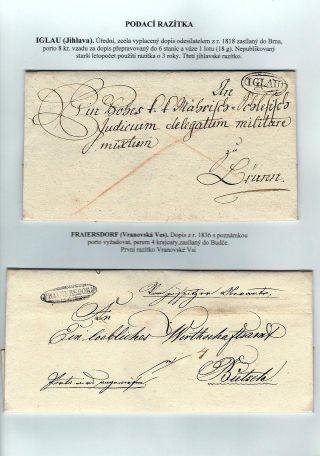 PODACÍ RAZÍTKA
IGLAU (Jihlava). Úřední, zcela vyplacený dopis odesilatelem z r. 1818 zasílaný do Brna,
porto 8 kr. vzadu za dopis přepravovaný do 6 stanic a váze 1 lotu (18 g). Nepublikovaný
starší letopočet použití razítka o 3 roky. Třetí jihlavské razítko.
IGLAU
An
Ein Hohes k. k. Mährisch-Schlesisch
Judicium delegatum militare
mixtum
zu
Brünn.
FRAIERSDORF (Vranovská Ves). Dopis z r. 1836 s poznámkou
porto vyžadovat, perem 4 krejcary, zasílaný do Budče.
První razítko Vranovské Vsi
FRAIERSDORF
An
Ein loebliches Wirthschaftsamt
4
Butsch